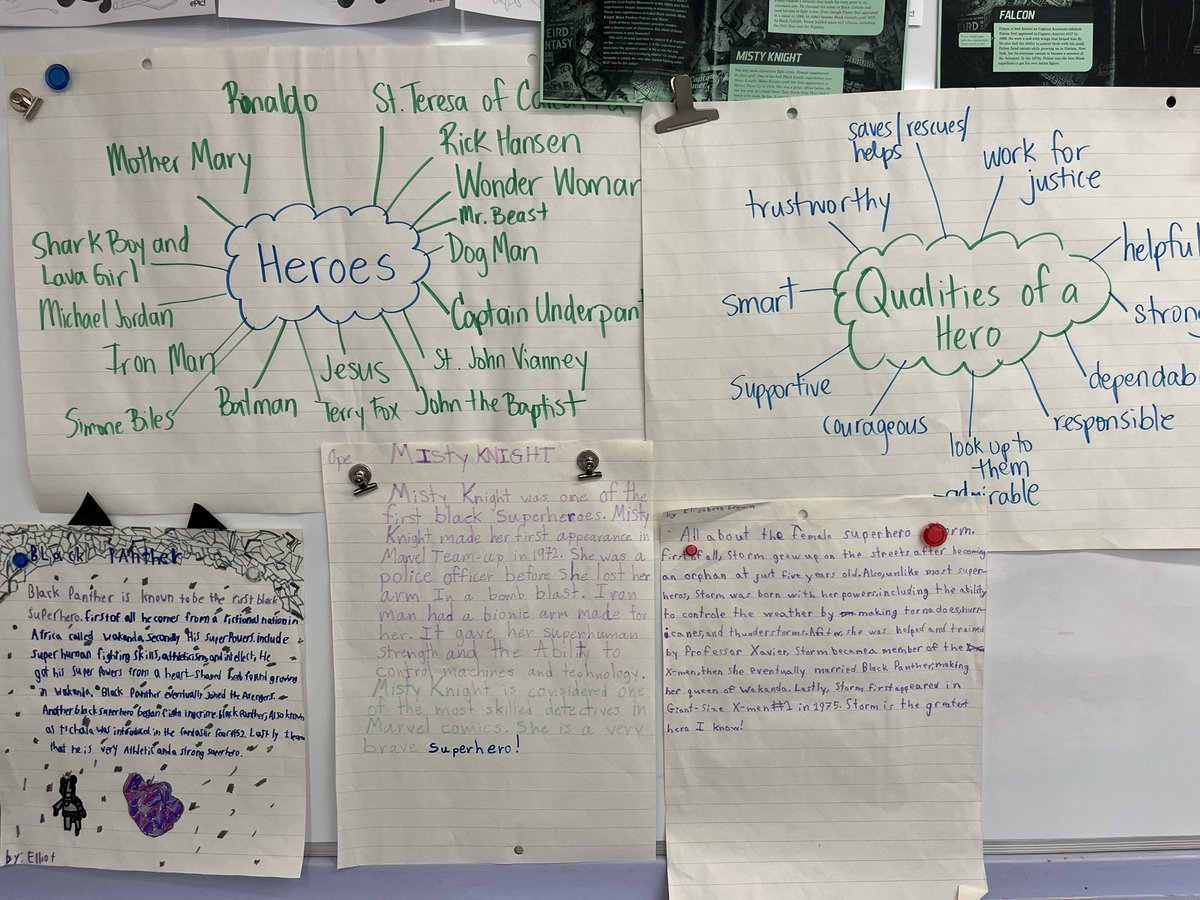 Heroes
Ronaldo
St. Teresa of
Rick Hansen
Wonder Woman
Mr. Beast
Dog Man
Captain Underpan
St. John Vianney
John the Baptist
Terry Fox
Jesus
Batman
Simone Biles
Iron Man
Michael Jordan
Shark Boy and
Lava Girl
Mother Mary
MISTY KNIGHT
FALCON
Qualities of a
Hero
saves/rescues/
helps
work for
justice
helpful
strong
dependab
responsible
look up to
them
admirable
courageous
supportive
smart
trustworthy
Black Panther
Black Panther is known to be the first black
superhero. first of all he comes from a fictional nation in
Africa called wakanda, secondly His super Powers include
super human fighting skills, athleticism, and intellect. He
got his super Powers from a heart shaped found growing
in wakanda. Black Panther eventually Joined the Avengers.
Another black superhero began fighting crime. black Panther, Also known
as t'challa was introduced in the fantastic four #52. Lastly I
that he is very Athletic and a strong superhero.
by: Elliot
Ope
MISTY KNIGHT
Misty Knight was one of the
first black Superheroes. Misty
Knight made her first appearance in
Marvel Team-up in 1972. She was a
police officer before she lost her
arm In a bomb blast. Iron
man had a bionic arm made for
her. It gave her superhuman
strength and the Ability to
control machines and technology.
Misty Knight is considered one
of the most skilled detectives in
Marvel comics. She is a very
brave Superhero!
by Elizabeth
All about the female superhero
first of all, Storm grew up on the streets after becoming
an orphan at just five years old. Also, unlike most super-
heros, Storm was born with her powers, including the ability
to controle the weather by making tornadoes, hurr-
icanes, and thunderstorms. After she was helped and trained
by Professor Xavier, Storm became a member of the
X-men, then she eventually married Black Panther, making
her queen of Wakanda. Lastly, Storm first appeared in
Giant-Size X-men #1 in 1975. Storm is the greatest
hero I know!